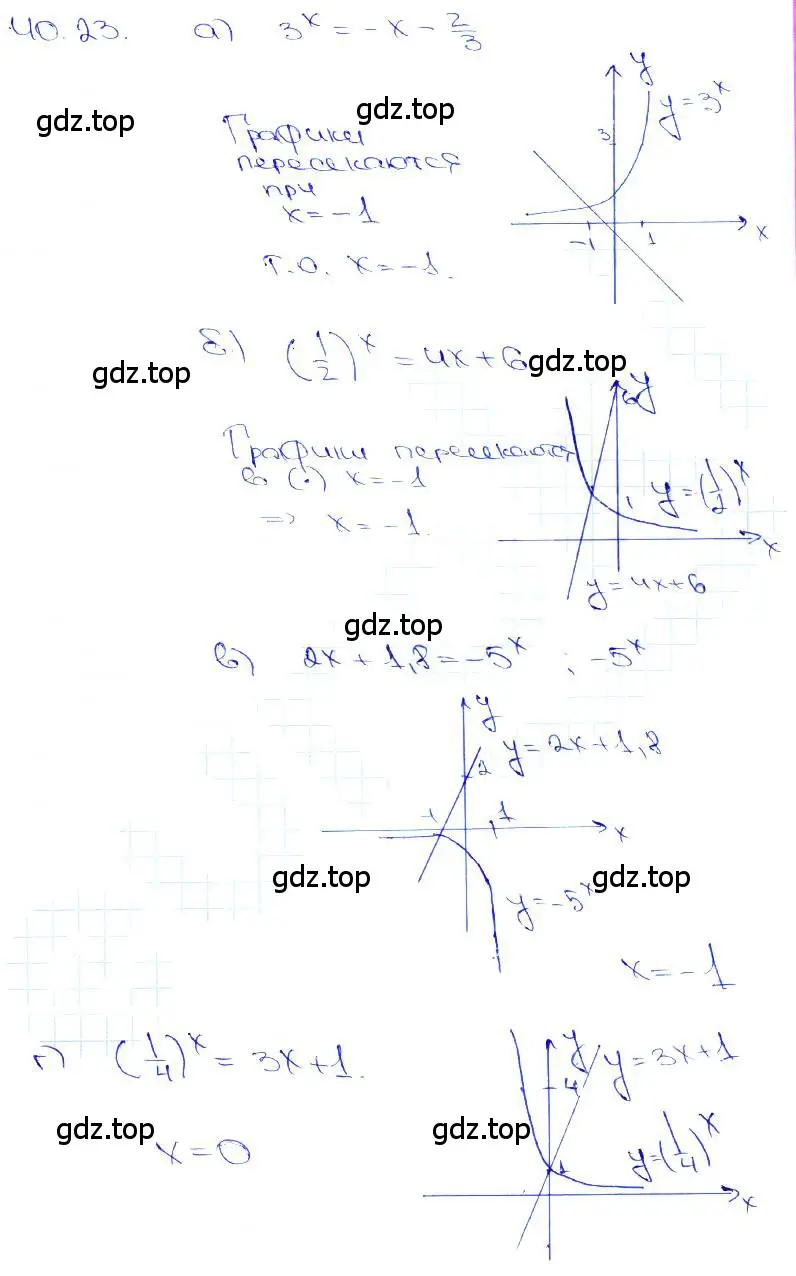 40.23. а) 3^x = -x - 2/3
gdz.top
gdz.top
y
y = 3^x
3
Графики
пересекаются
при
x = -1
-1
1
x
т.о. x = -1.
б) (1/2)^x = 4x + 6
gdz.top
gdz.top
6
y
Графики пересекаются
в (·) x = -1
1
y = (1/2)^x
=> x = -1.
x
y = 4x + 6
gdz.top
в) 2x + 1,8 = -5^x ; -5^x
y
y = 2x + 1,8
2
-1
1
x
gdz.top
gdz.top
y = -5^x
x = -1
г) (1/4)^x = 3x + 1.
y
y = 3x + 1
4
gdz.top
gdz.top
x = 0
1
y = (1/4)^x
x